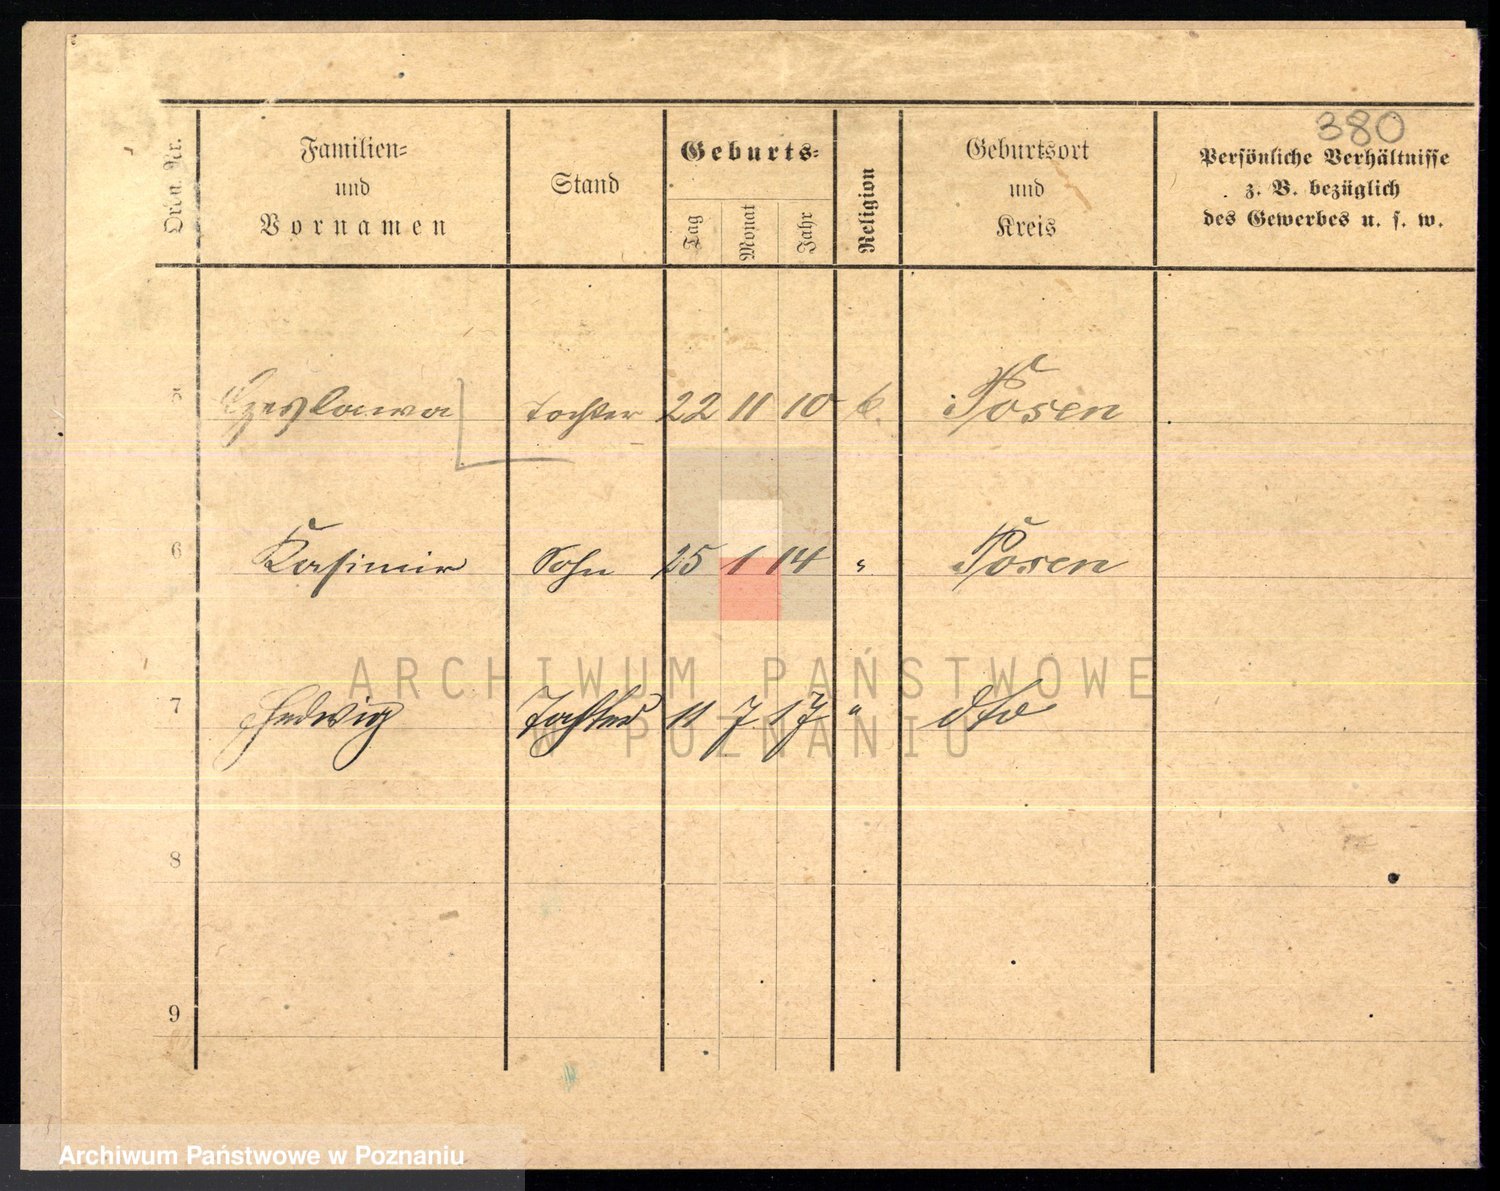 380
Ordn. Nr.
Familien-
und
Vornamen
Stand
Geburts-
Tag
Monat
Jahr
Religion
Geburtsort
und
Kreis
Persönliche Verhältnisse
z. B. bezüglich
des Gewerbes u. s. w.
5 Czeslawa Tochter 22 11 10 k. Posen
6 Kasimir Sohn 25 1 14 " Posen
7 Hedwig Tochter 11 7 17 " dto
8
9
ARCHIWUM PAŃSTWOWE
W POZNANIU
Archiwum Państwowe w Poznaniu